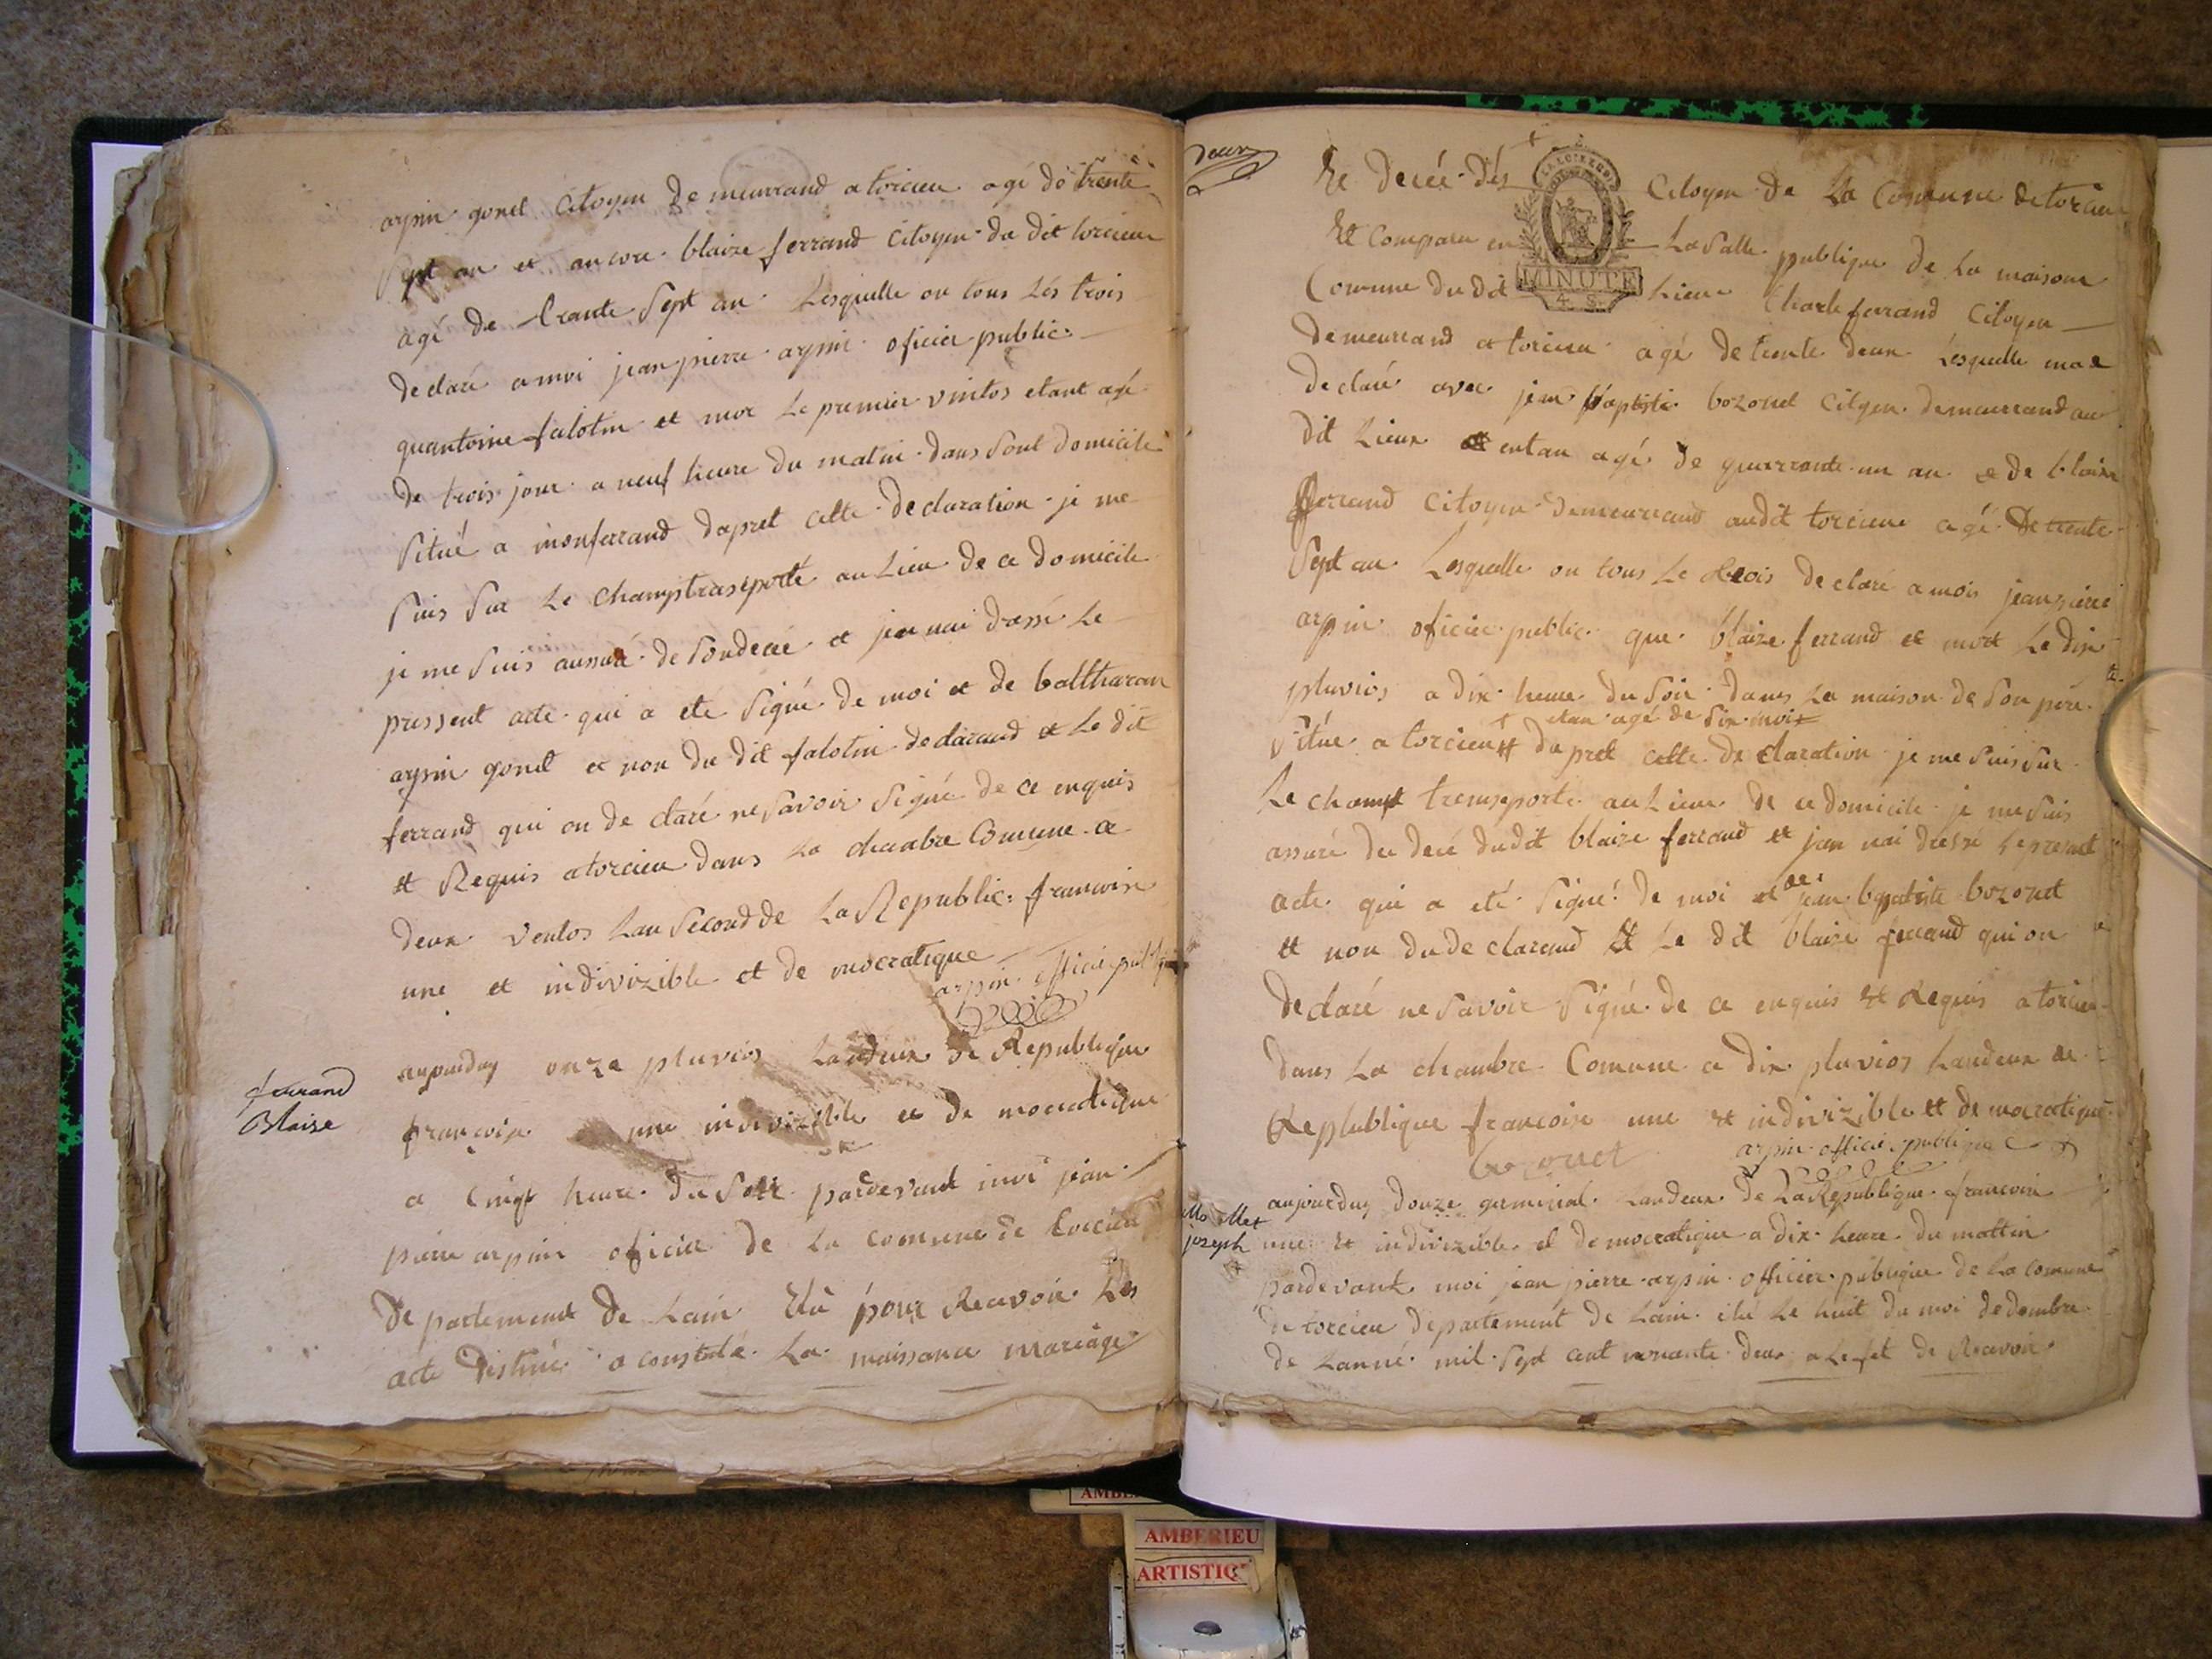 arpin gonet Citoyen demeurrand a torcieu agé de trente
Sept an et ancore blaize ferrand Citoyen du dit torcieu
agé de trante Sept an Lesquelle on tous Lés trois
declaré a moi jean pierre arpin oficier public
quantoine falotin et mor Le premier vintos etant agé
de trois jour a neuf heure du matin dans Sont domicile
Situé a monferrand dapret cette declaration je me
Suis Sur Le champ trasporté au Lieu de ce domicile
je me Suis assuré de Son decée et jeu nai dressé Le
pressent acte qui a eté Signé de moi et de balthazar
arpin gonet et non du dit falotin declarand et Le dit
ferrand qui on declaré ne Savoir Signé de ce enquis
et Requis a torcieu dans La chambre Comune a
deux ventos Lan Second de La Republic francoise
une et indivizible et democratique
arpin officié publique
aujourduy onze pluvios Landeux de Republique
françoise une indivizible et democratique
ferrand
Blaize
a Cinqt heure du Soir pardevant moi jean
pierre arpin oficier de La comune de torcieu
departement de Lain Elu pour Recevoir Les
acte destiné a constaté La naissance mariage
deux
Et Decéé dés Citoyen de La Comune de torcieu
Et Comparu en La Salle publique de La maison
Comune du dit Lieu Charle ferrand Citoyen
MINUTE
4. S.
demeurrand a torcieu agé de trente deux Lesquelle mae
declaré avec jean baptiste bozonet Citoyen demeurrand au
dit Lieux entau agé de quarrante un an et de blaize
ferrand Citoyen demeurrand au dit torcieu agé de trente
Sept an Lesquelle on tous Le trois declare a mois jean pierre
arpin oficier public que blaize ferrand et mort Le dix
pluvios a dix heure du Soir dans La maison de Son pere
etan agé de Six mois
Situe a torcieu dapret cette declaration je me Suis Sur
Le champt transporte au Lieu de ce domicile je me Suis
assuré du decé du dit blaize ferrand et jeu nai dressé Le present
acte qui a eté Signé de moi et de jean baptiste bozonet
et non du declarand et Le dit blaize ferrand qui on
declaré ne Savoir Signé de ce enquis et Requis a torcieu
dans La chambre Comune a dix pluvios Landeux de
Replublique francoise une et indivizible et democratique
bozonet arpin officié publique
aujourduy douze germinal Landeux de La Republique francoise
Mollet
joseph
une et indivizible et democratique a dix heure du mattin
pardevant moi jean pierre arpin officier publique de La Comune
de torcieu departement de Lain elú Le huit du moi dedembre
de Lanné mil Sept cent nonante deux a Lefet de Recevoir
AMBERIEU
ARTISTIQ